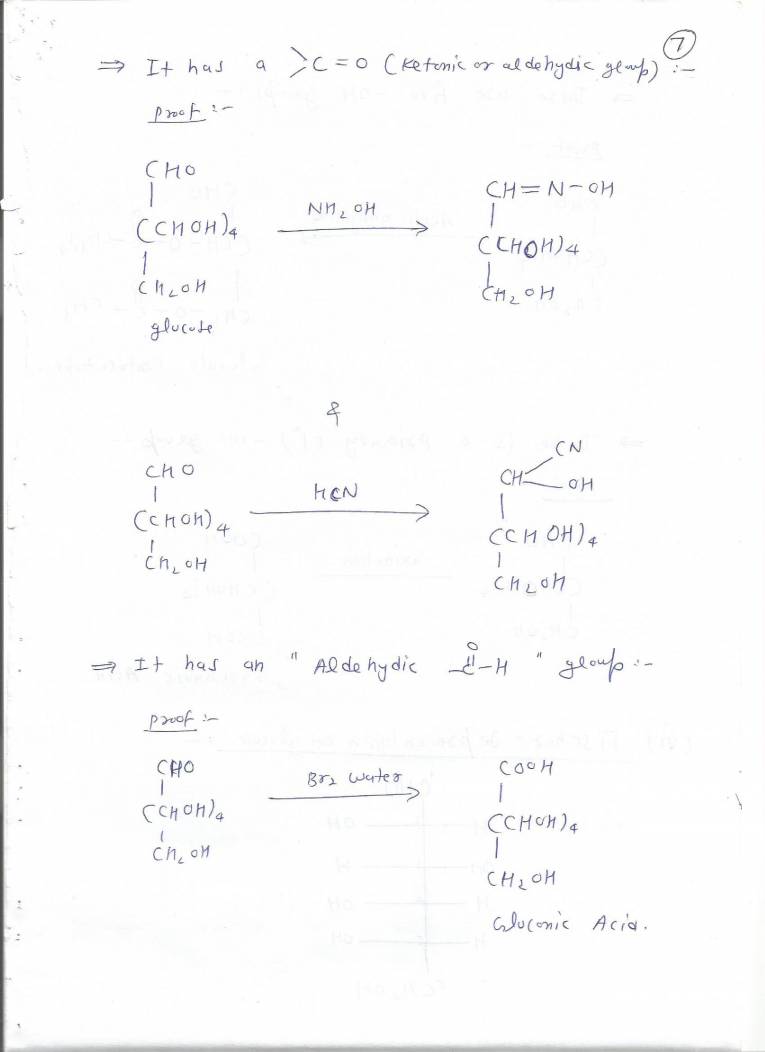 7
⇒ It has a >C=O (Ketonic or aldehydic group) :-
Proof :-
CHO
|
(CHOH)4
|
CH2OH
glucose
NH2OH
CH=N-OH
|
(CHOH)4
|
CH2OH
&
CHO
|
(CHOH)4
|
CH2OH
HCN
CN
CH
OH
|
(CHOH)4
|
CH2OH
⇒ It has an "Aldehydic -C-H" group :-
O
Proof :-
CHO
|
(CHOH)4
|
CH2OH
Br2 water
COOH
|
(CHOH)4
|
CH2OH
Gluconic Acid.